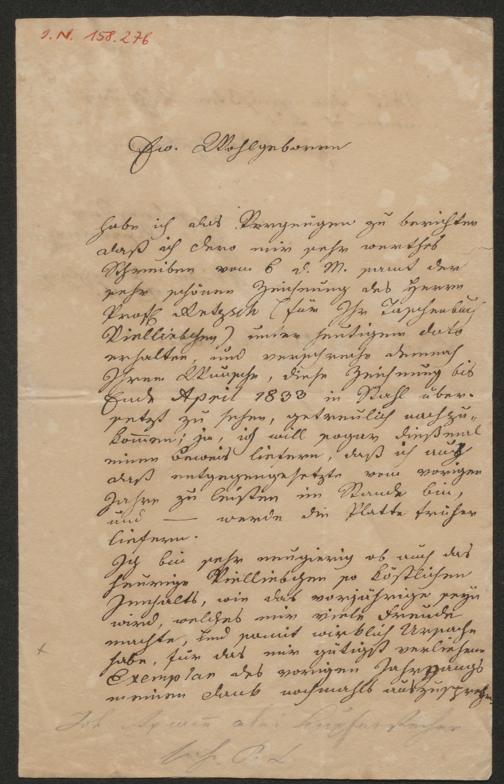 I. N. 158.276
Ew. Wohlgeboren
habe ich das Vergnügen zu berichten
daß ich dero mir sehr werthes
Schreiben vom 6 d. M. samt der
sehr schönen Zeichnung des Herrn
Prof. Retzsch (für Ihr Taschenbuch
Vielliebchen) unter heutigem dato
erhalten, und verspreche demnach
Ihrem Wunsche, diese Zeichnung bis
Ende April 1833 in Stahl über-
setzt zu sehen, getreulich nachzu-
kommen; ja, ich will sogar dießmal
einen Beweis liefern, daß ich auch
daß entgegengesetzte vom vorigen
Jahre zu leisten im Stande bin,
und — werde die Platte früher
liefern.
Ich bin sehr neugierig ob auch das
heurige Vielliebchen so köstlichen
Innhalts, wie das vorjährige seyn
wird, welches mir viele Freude
machte, und somit wirklich Ursache
habe, für das mir gütigst verliehene
Exemplar des vorigen Jahrgangs
meinen Dank nochmals auszusprechen
Kupferstecher